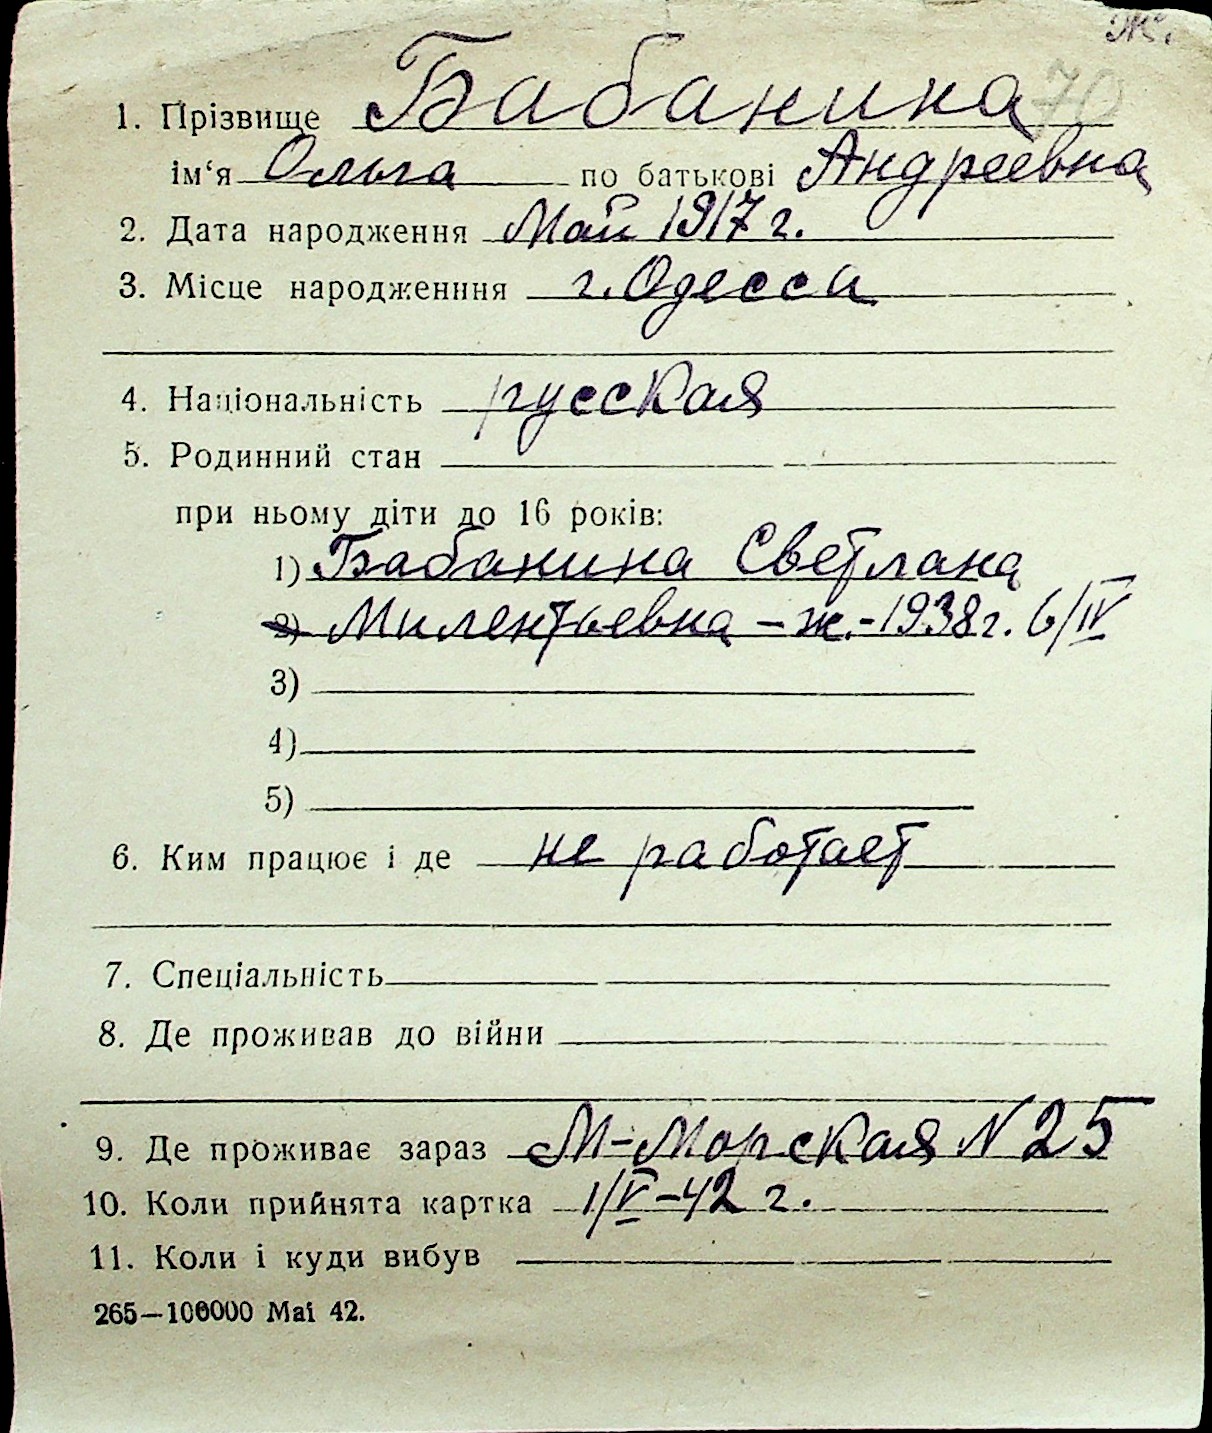 ж.
70
1. Прізвище Бабанина
ім‘я Ольга по батькові Андреевна
2. Дата народження Май 1917 г.
3. Місце народженння г. Одесса
4. Національність русская
5. Родинний стан
при ньому діти до 16 років:
1) Бабанина Светлана
2) Милентьевна – ж. - 1938 г. 6/IV
3)
4)
5)
6. Ким працює і де не работает
7. Спеціальність
8. Де проживав до війни
9. Де проживає зараз М-Морская N 25
10. Коли прийнята картка 1/V–42 г.
11. Коли і куди вибув
265—100000 Mai 42.